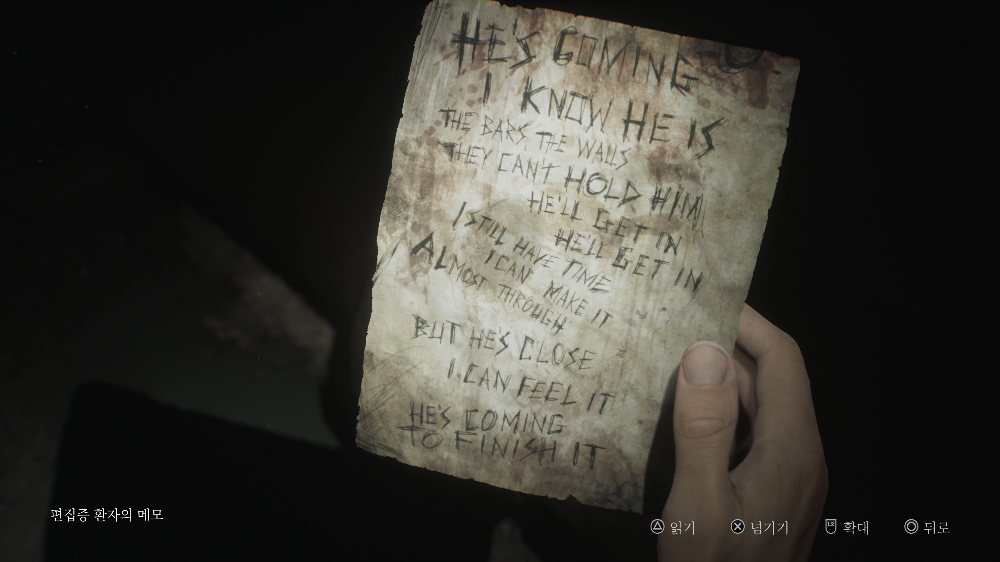 HE'S COMING
I KNOW HE IS
THE BARS, THE WALLS
THEY CAN'T HOLD HIM
HE'LL GET IN
HE'LL GET IN
I STILL HAVE TIME
I CAN MAKE IT
ALMOST THROUGH
BUT HE'S CLOSE
I CAN FEEL IT
HE'S COMING
TO FINISH IT
편집증 환자의 메모
읽기
넘기기
L2 확대
뒤로